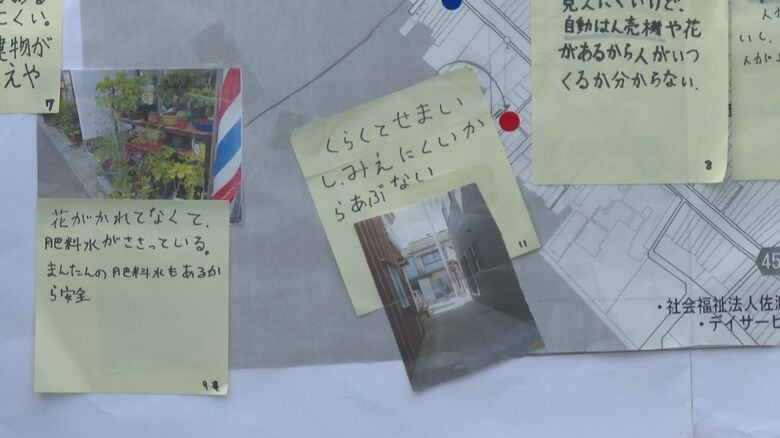 くい。
物が
えや
7
花がかれてなくて、
肥料水がささっている。
まんたんの肥料水もあるか
ら安全
9
くらくてせまい
し、みえにくいか
らあぶない
11
見えにくいけど、
自動はん売機や花
があるから人がいつ
くるか分からない。
8
いし、
45
・社会福祉法人佐
・デイサービ